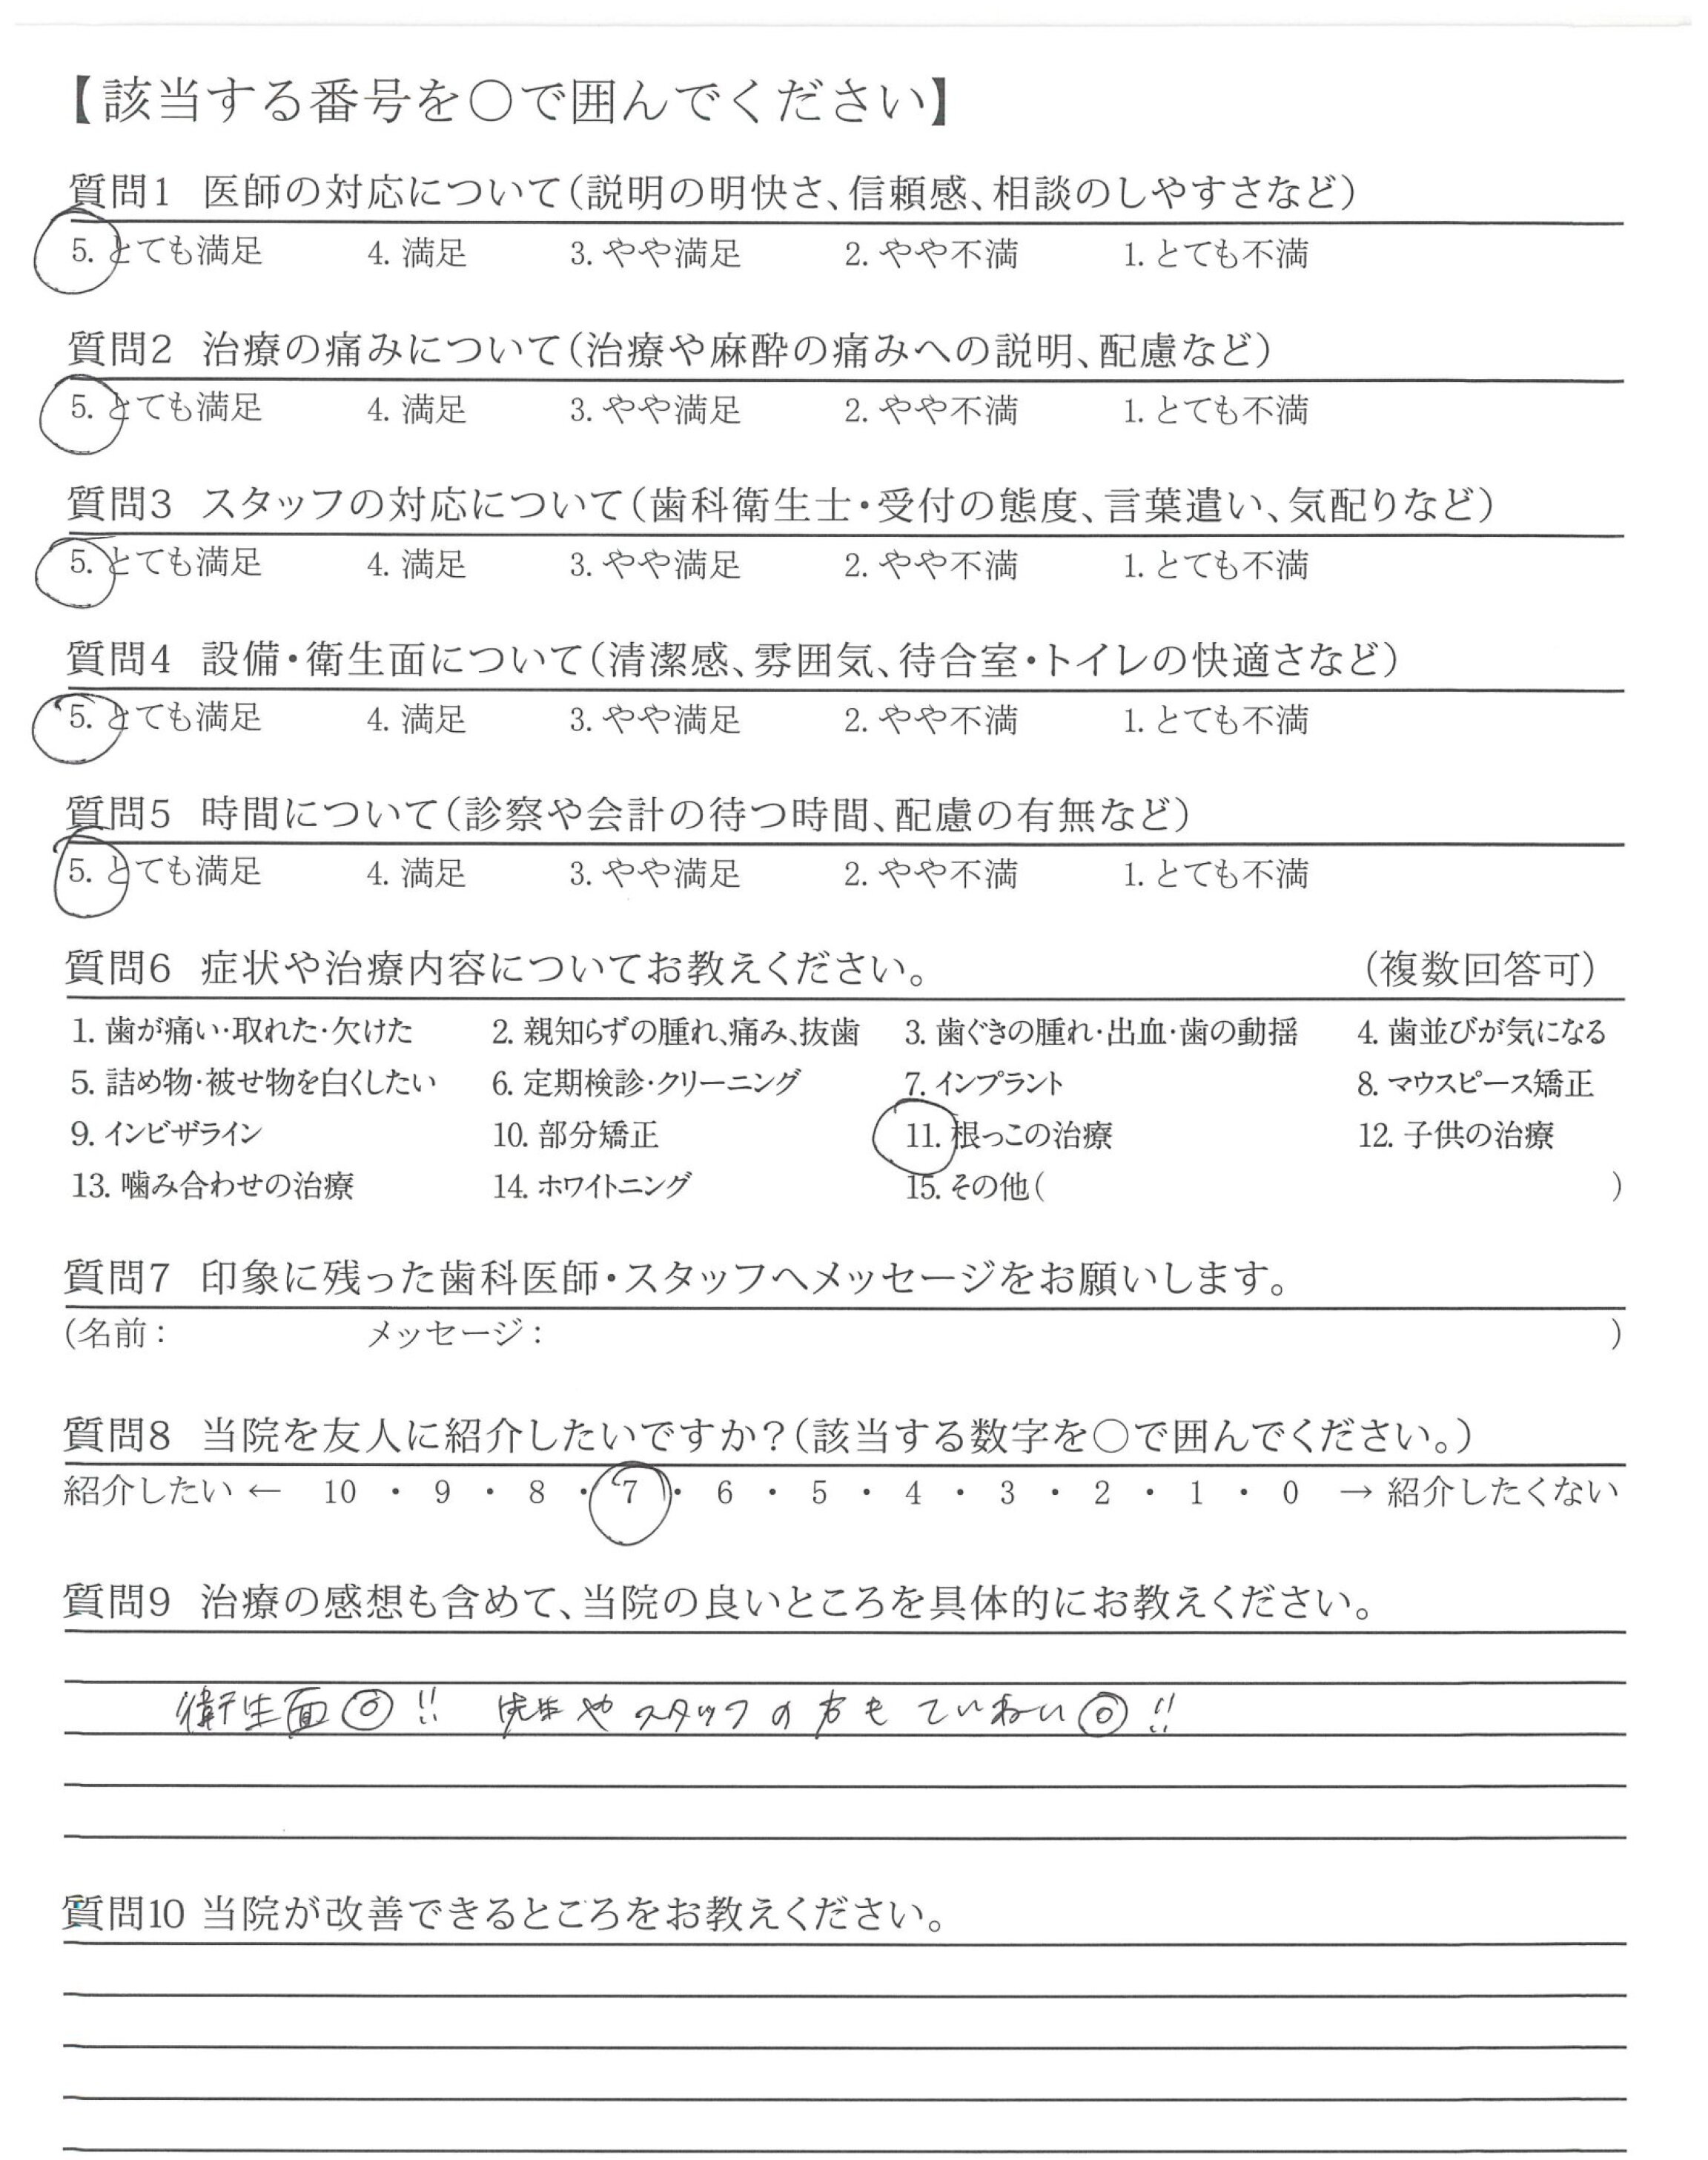 【該当する番号を○で囲んでください】
質問1 医師の対応について(説明の明快さ、信頼感、相談のしやすさなど)
5. とても満足 4. 満足 3. やや満足 2. やや不満 1. とても不満
質問2 治療の痛みについて(治療や麻酔の痛みへの説明、配慮など)
5. とても満足 4. 満足 3. やや満足 2. やや不満 1. とても不満
質問3 スタッフの対応について(歯科衛生士・受付の態度、言葉遣い、気配りなど)
5. とても満足 4. 満足 3. やや満足 2. やや不満 1. とても不満
質問4 設備・衛生面について(清潔感、雰囲気、待合室・トイレの快適さなど)
5. とても満足 4. 満足 3. やや満足 2. やや不満 1. とても不満
質問5 時間について(診察や会計の待つ時間、配慮の有無など)
5. とても満足 4. 満足 3. やや満足 2. やや不満 1. とても不満
質問6 症状や治療内容についてお教えください。 (複数回答可)
1. 歯が痛い・取れた・欠けた 2. 親知らずの腫れ、痛み、抜歯 3. 歯ぐきの腫れ・出血・歯の動揺 4. 歯並びが気になる
5. 詰め物・被せ物を白くしたい 6. 定期検診・クリーニング 7. インプラント 8. マウスピース矯正
9. インビザライン 10. 部分矯正 11. 根っこの治療 12. 子供の治療
13. 噛み合わせの治療 14. ホワイトニング 15. その他( )
質問7 印象に残った歯科医師・スタッフへメッセージをお願いします。
(名前: メッセージ: )
質問8 当院を友人に紹介したいですか?(該当する数字を○で囲んでください。)
紹介したい ← 10 ・ 9 ・ 8 ・ 7 ・ 6 ・ 5 ・ 4 ・ 3 ・ 2 ・ 1 ・ 0 → 紹介したくない
質問9 治療の感想も含めて、当院の良いところを具体的にお教えください。
衛生面◎!! 先生やスタッフの方もていねい◎!!
質問10 当院が改善できるところをお教えください。